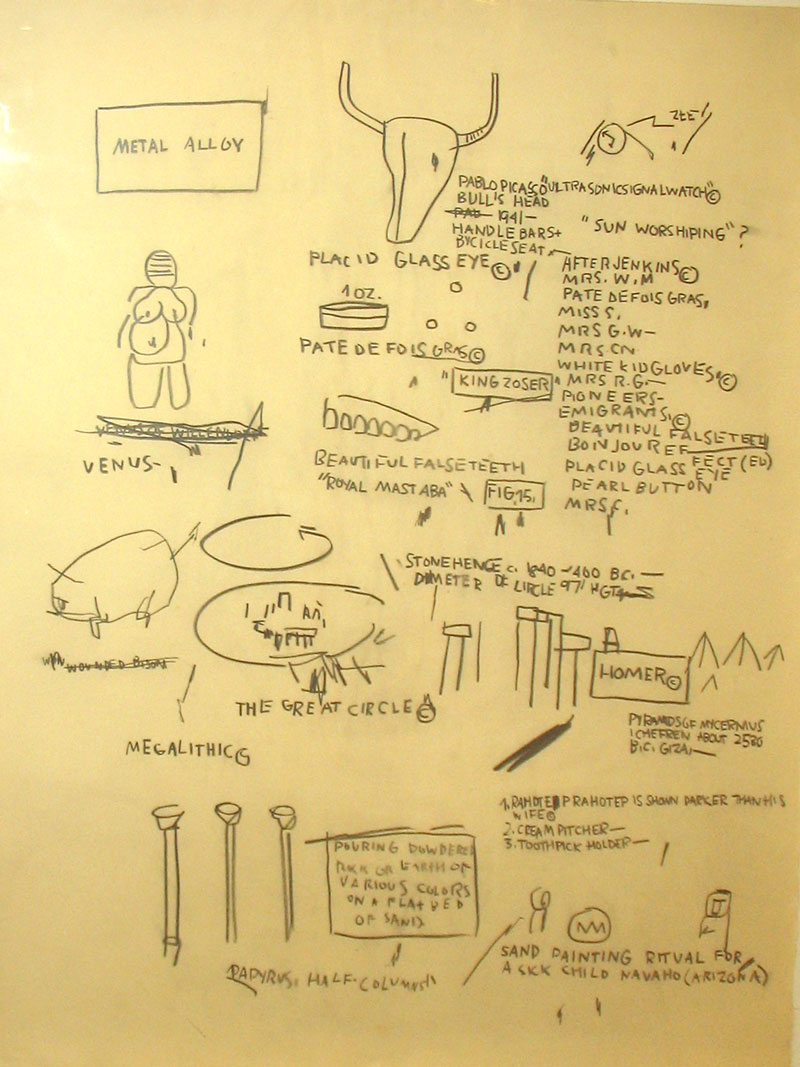 METAL ALLOY
ZEE
PABLO PICASSO "ULTRASONIC SIGNAL WATCH"©
BULL'S HEAD
1941-
HANDLE BARS+
BYCICLE SEAT.
"SUN WORSHIPING"?
PLACID GLASS EYE©
1 OZ.
PATE DE FOIS GRAS©
AFTER JENKINS©
MRS. W.M
PATE DE FOIS GRAS,
MISS S,
MRS G.W-
MRS CN
WHITE KID GLOVES,©
MRS R.G.-
PIONEERS-
EMIGRANTS,©
BEAUTIFUL FALSETEETH
BONJOUR EF
FECT(ED)
PLACID GLASS EYE
PEARL BUTTON
MRS F,
"KING ZOSER"
VENUS OF WILLENDORF
VENUS-
BEAUTIFUL FALSETEETH
"ROYAL MASTABA"
FIG,15,
STONEHENGE c. 1840-1400 BC.-
DIAMETER OF CIRCLE 97' HGT
WOUNDED BISON
THE GREAT CIRCLE©
MEGALITHIC©
HOMER©
PYRAMIDS OF MYCERNIUS
ICHEFREN ABOUT 2530
B.C. GIZA,-
1. RAHOTEP PRAHOTEP IS SHOWN DARKER THAN HIS
WIFE©
2. CREAM PITCHER-
3. TOOTHPICK HOLDER-
POURING POWDERED
ROCK OR EARTH OF
VARIOUS COLORS
ON A FLAT BED
OF SAND
PAPYRUS, HALF-COLUMNS
SAND PAINTING RITUAL FOR
A SICK CHILD NAVAHO (ARIZONA)